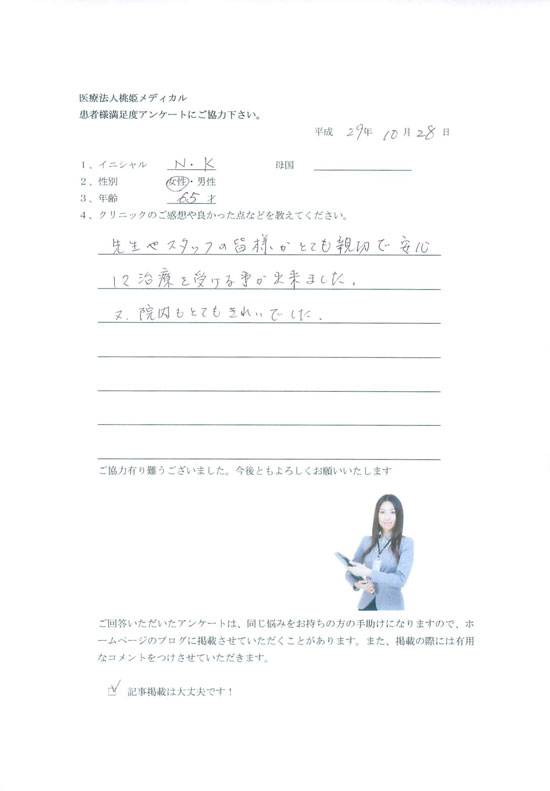 医療法人桃姫メディカル
患者様満足度アンケートにご協力下さい。
平成 29年 10月 28日
1、イニシャル N・K 母国
2、性別 女性・男性
3、年齢 65才
4、クリニックのご感想や良かった点などを教えてください。
先生やスタッフの皆様がとても親切で安心
して治療を受ける事が出来ました。
又、院内もとてもきれいでした。
ご協力有り難うございました。今後ともよろしくお願いいたします
ご回答いただいたアンケートは、同じ悩みをお持ちの方の手助けになりますので、ホ
ームページのブログに掲載させていただくことがあります。また、掲載の際には有用
なコメントをつけさせていただきます。
記事掲載は大丈夫です！